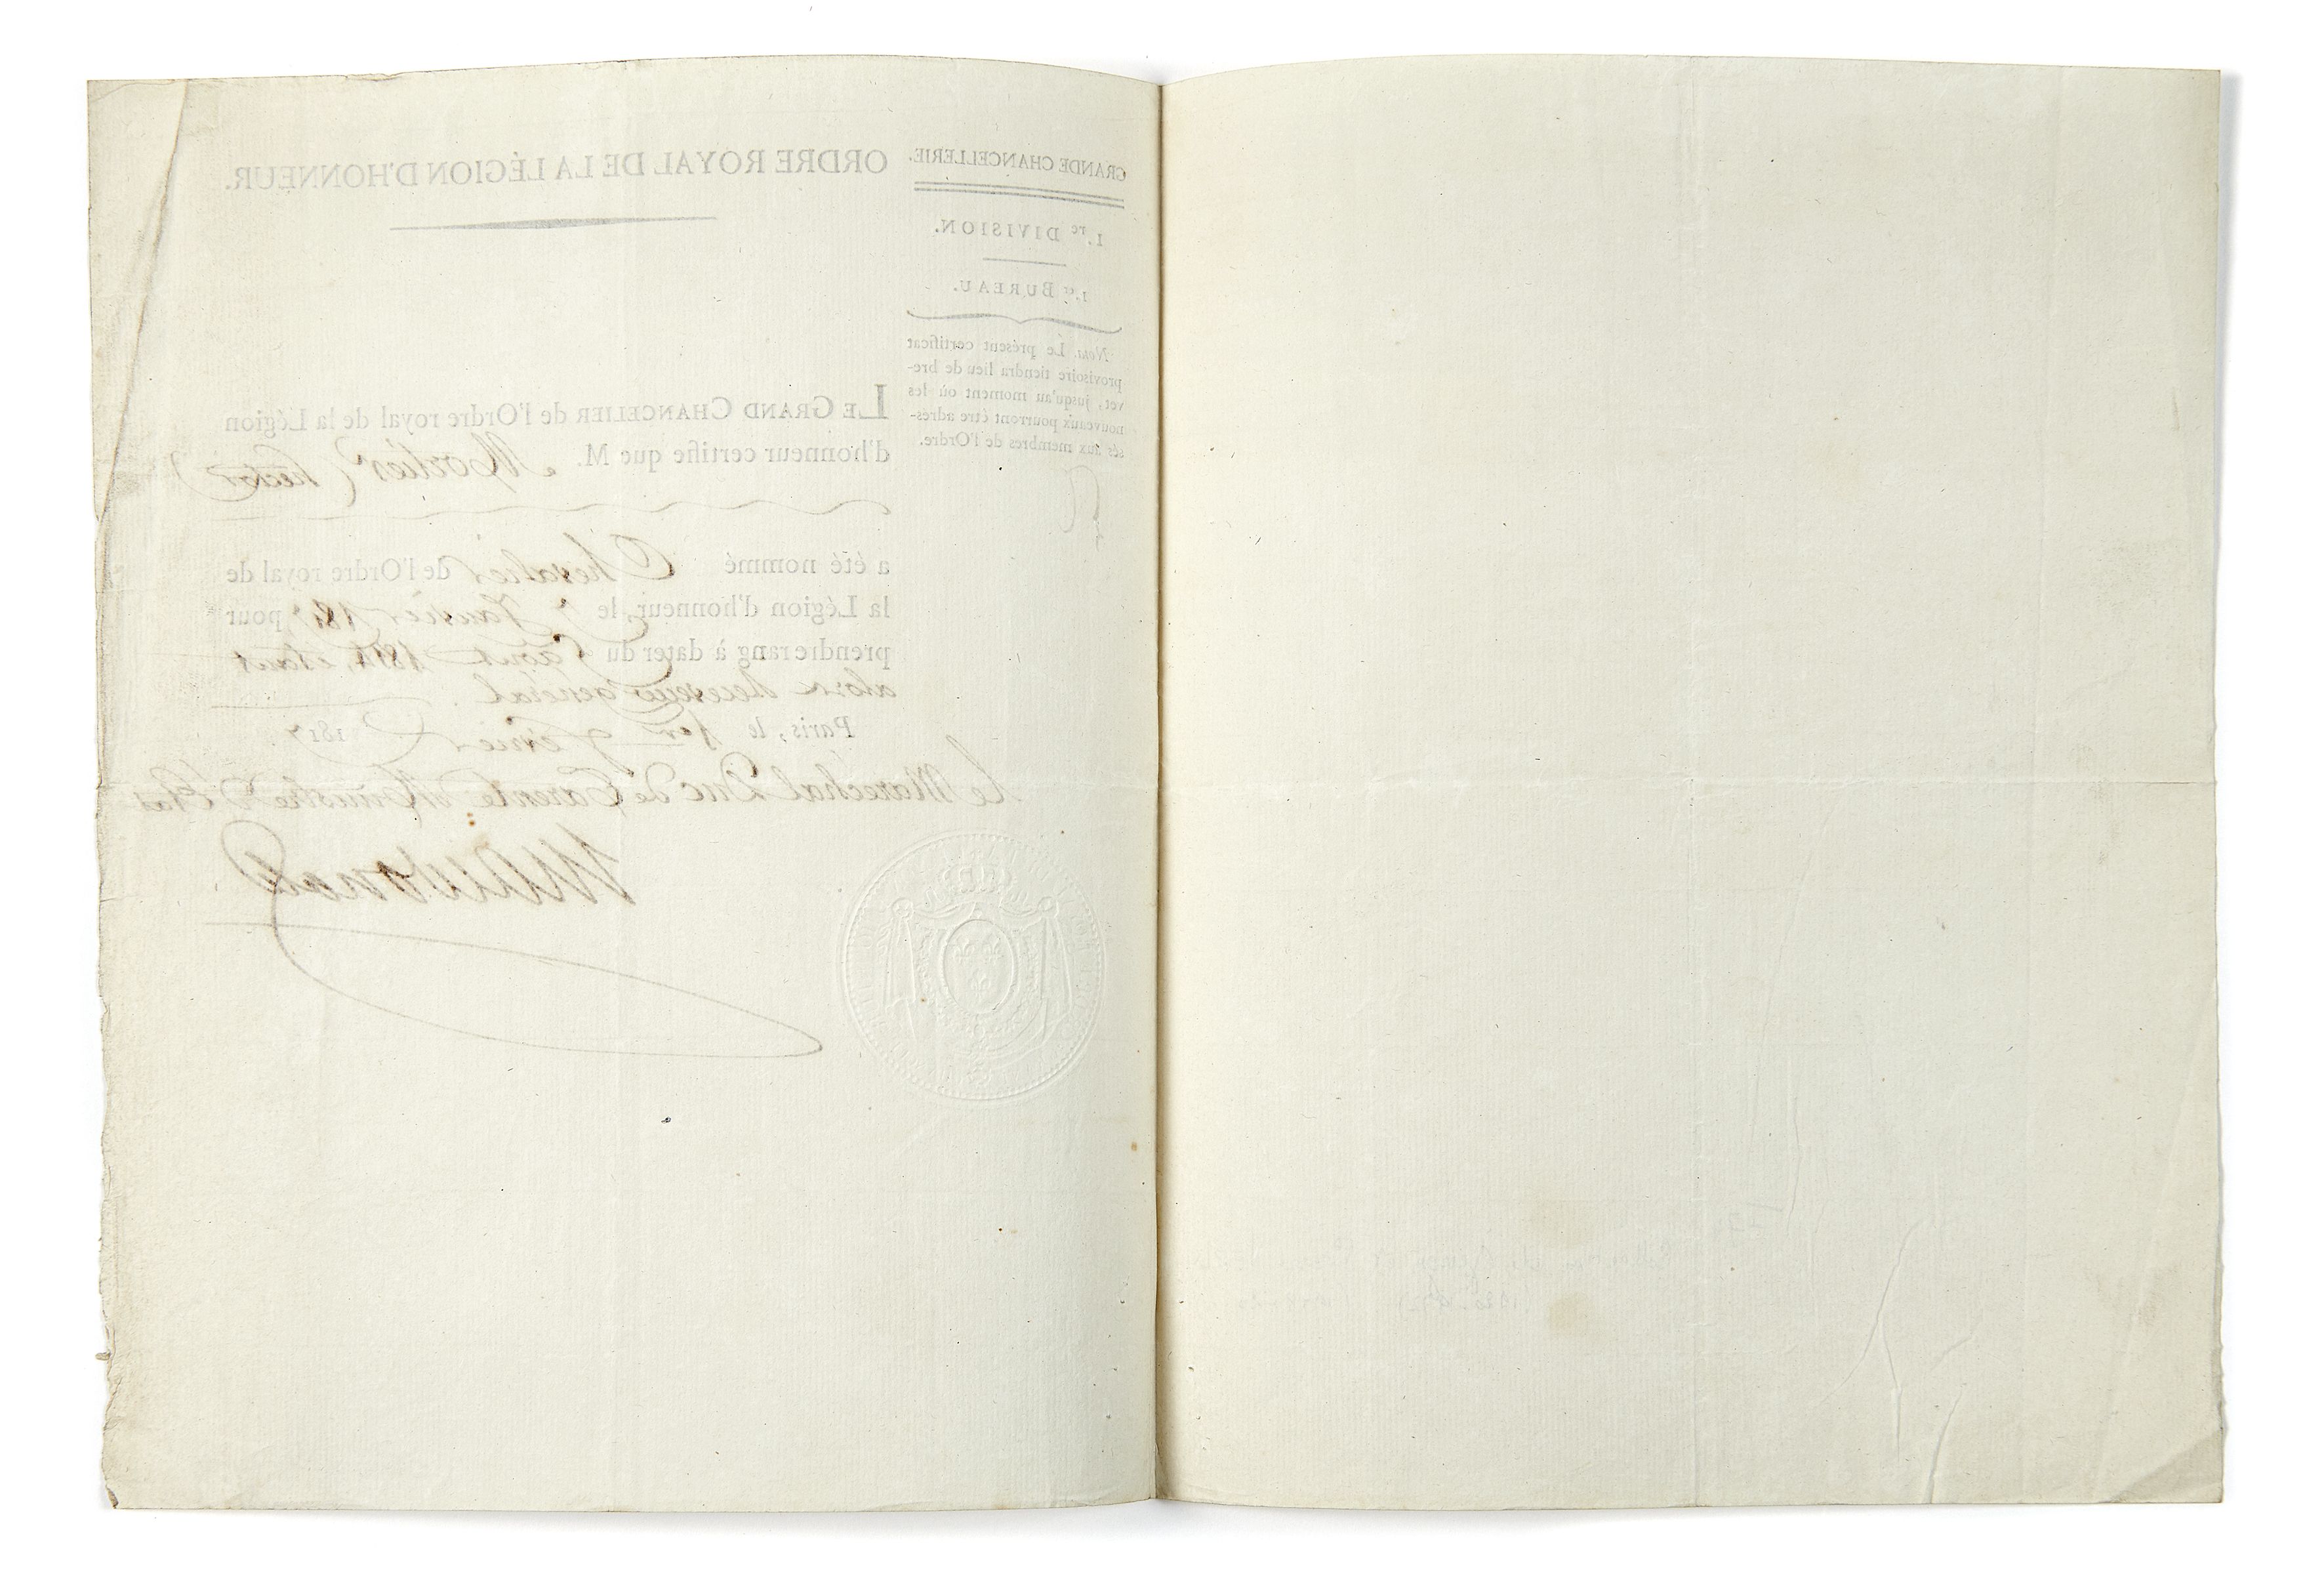 GRANDE CHANCELLERIE.
1.re DIVISION.
1.er BUREAU.
Nota. Le présent certificat
provisoire tiendra lieu de bre-
vet, jusqu'au moment où les
nouveaux pourront être adres-
sés aux membres de l'Ordre.
ORDRE ROYAL DE LA LÉGION D'HONNEUR.
LE GRAND CHANCELIER de l'Ordre royal de la Légion
d'honneur certifie que M. Mortier (hector)
a été nommé Chevalier de l'Ordre royal de
la Légion d'honneur, le Janvier 1817 pour
prendre rang à dater du 5 aout 1814, etant
alors receveur général.
Paris, le 1er février 1817
Le Maréchal Duc de Tarente Ministre d'Etat
Macdonald